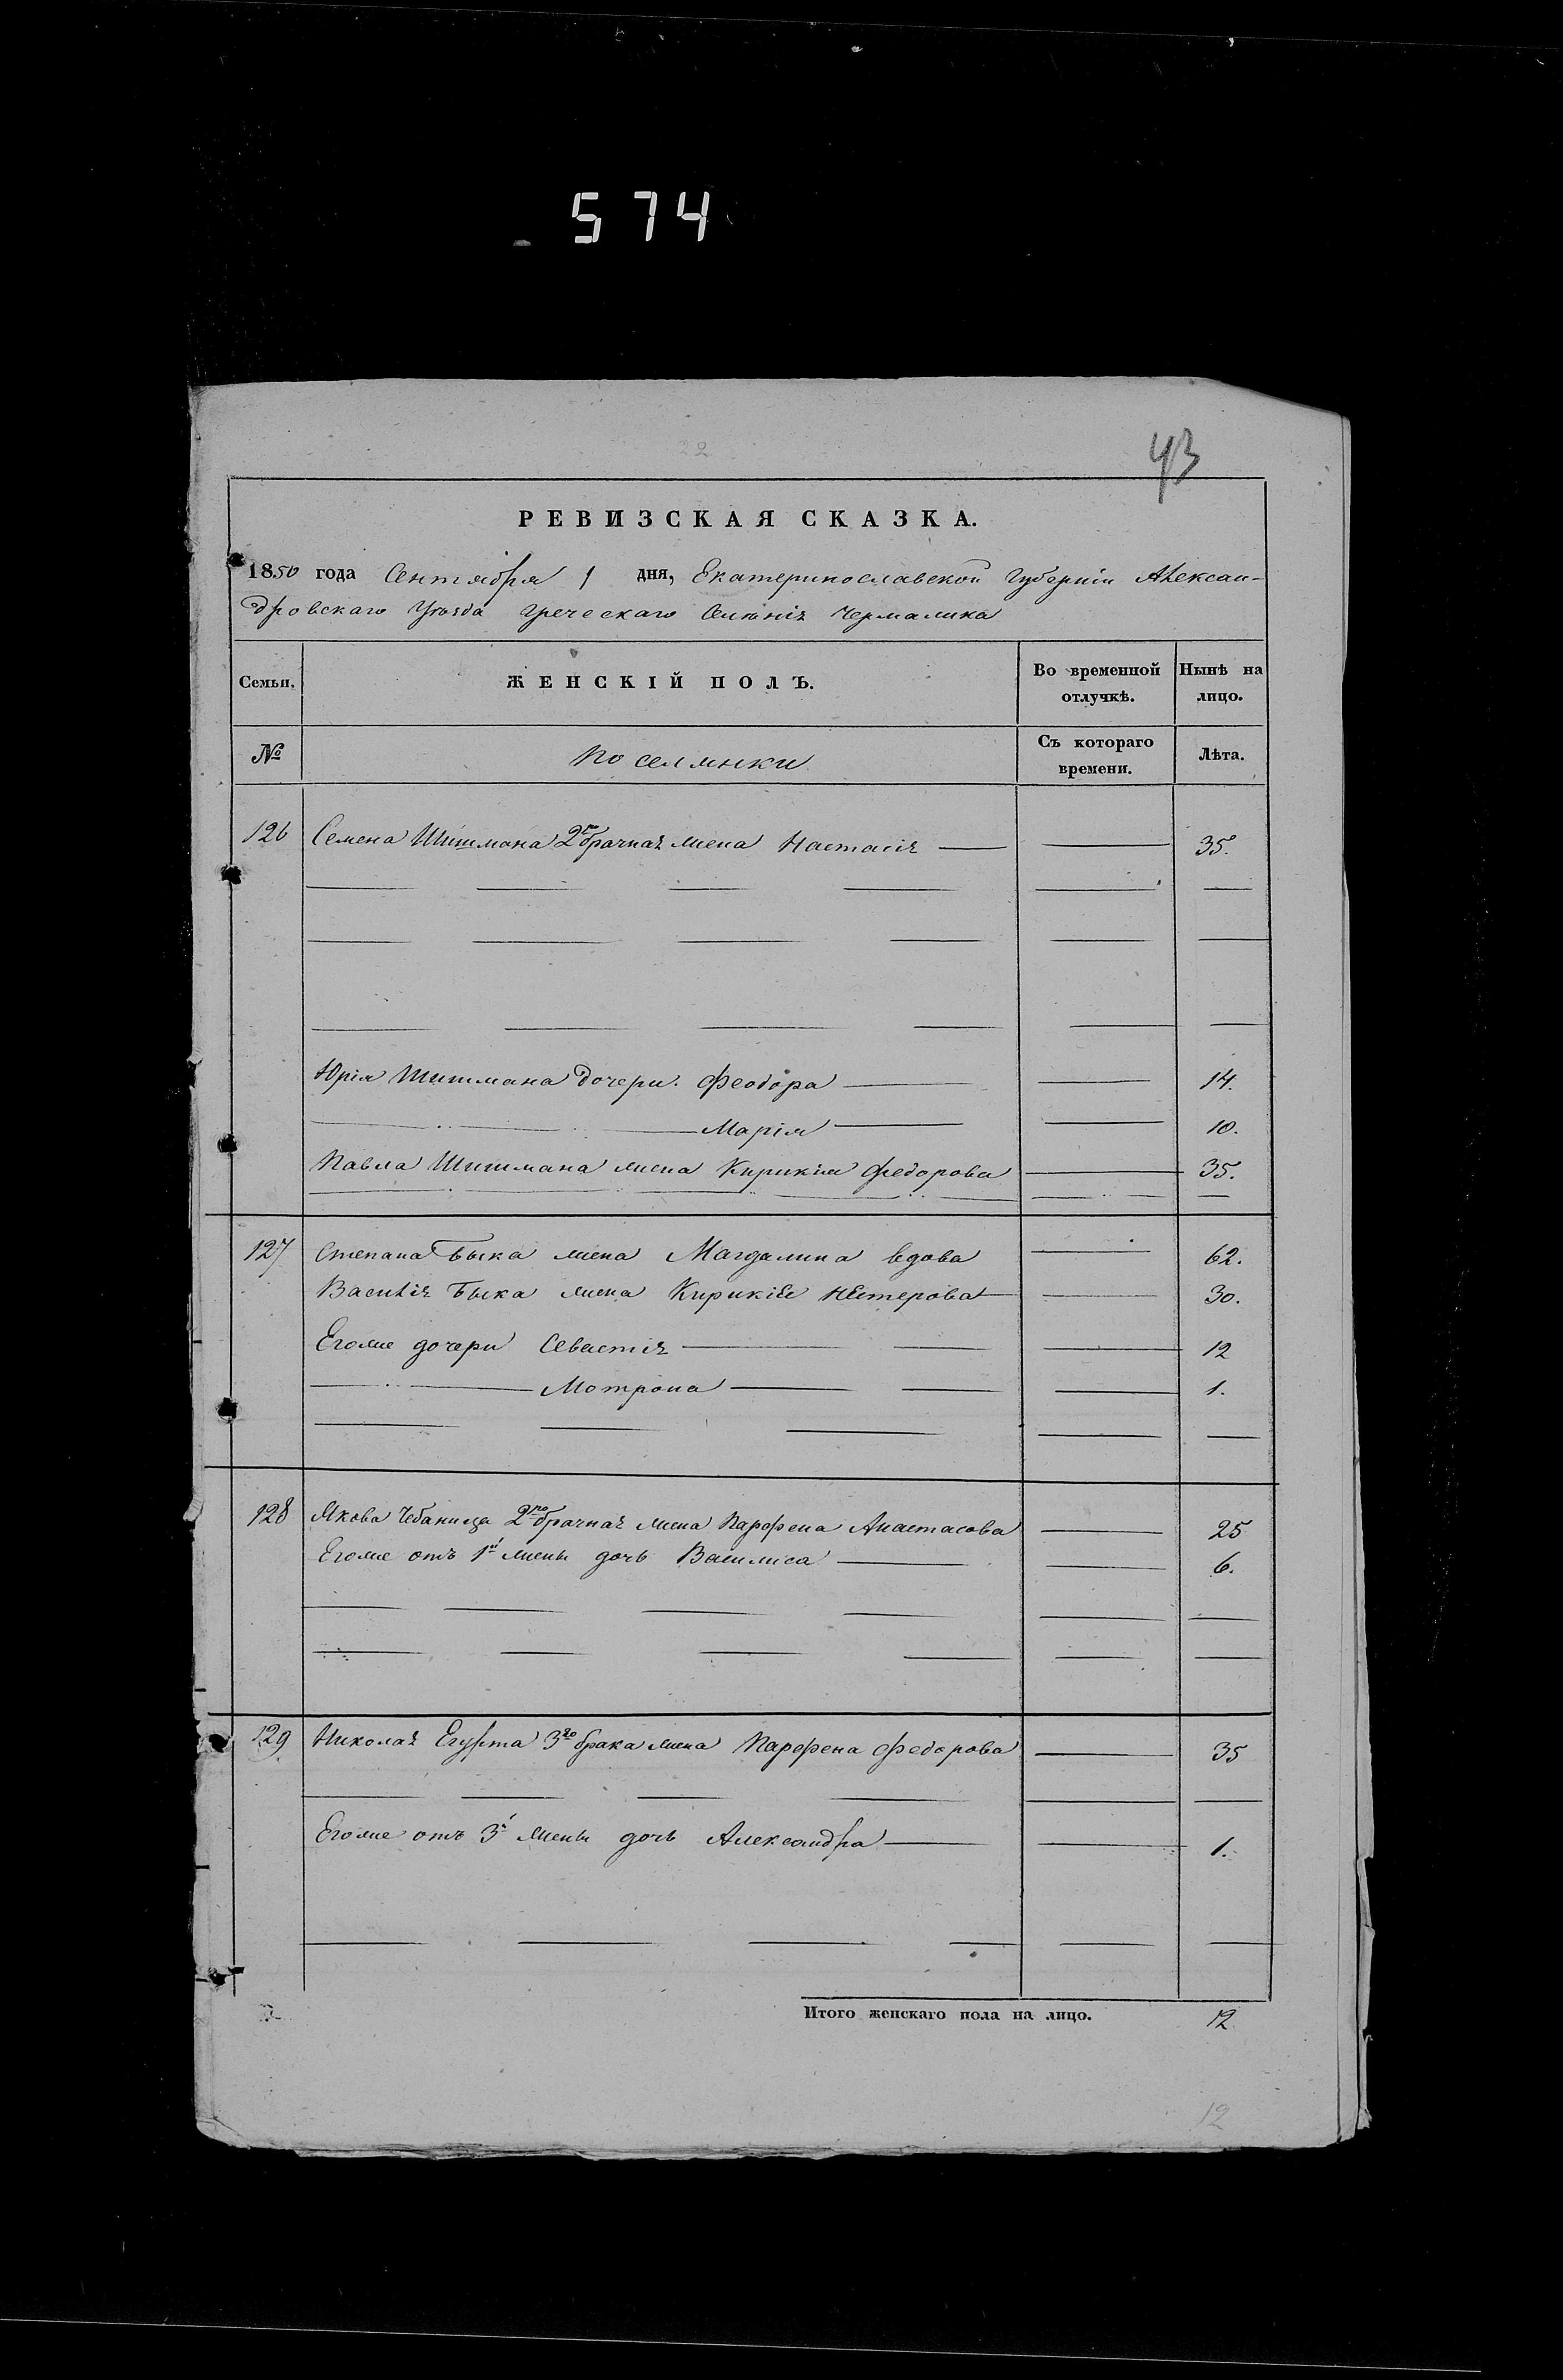 574
43
РЕВИЗСКАЯ СКАЗКА.
1850 года Сентября 1 дня, Екатеринославской Губерніи Алексан-
дровскаго Уѣзда Греческаго Селѣнія Чермалика
Семьи. ЖЕНСКІЙ ПОЛЪ. Во временной отлучкѣ. Нынѣ на лицо.
№ Поселянки Съ котораго времени. Лѣта.
126 Семена Шишмана 2го брачная жена Настасія 35.
Юрія Шишмана дочери. Феодора 14.
Марія 10.
Павла Шишмана жена Кирикія Федорова 35.
127 Степана Быка жена Магдалина вдова 62.
Василія Быка жена Кирикія Нестерова 30.
Егоже дочери Севастія 12
Мотрона 1.
128 Якова Чебаница 2го брачная жена Парфена Анастасова 25
Егоже отъ 1й жены дочь Василиса 6.
129 Николая Егурта 3го брака жена Парфена Федорова 35
Егоже отъ 3й жены дочь Александра 1.
Итого женскаго пола на лицо. 12
12